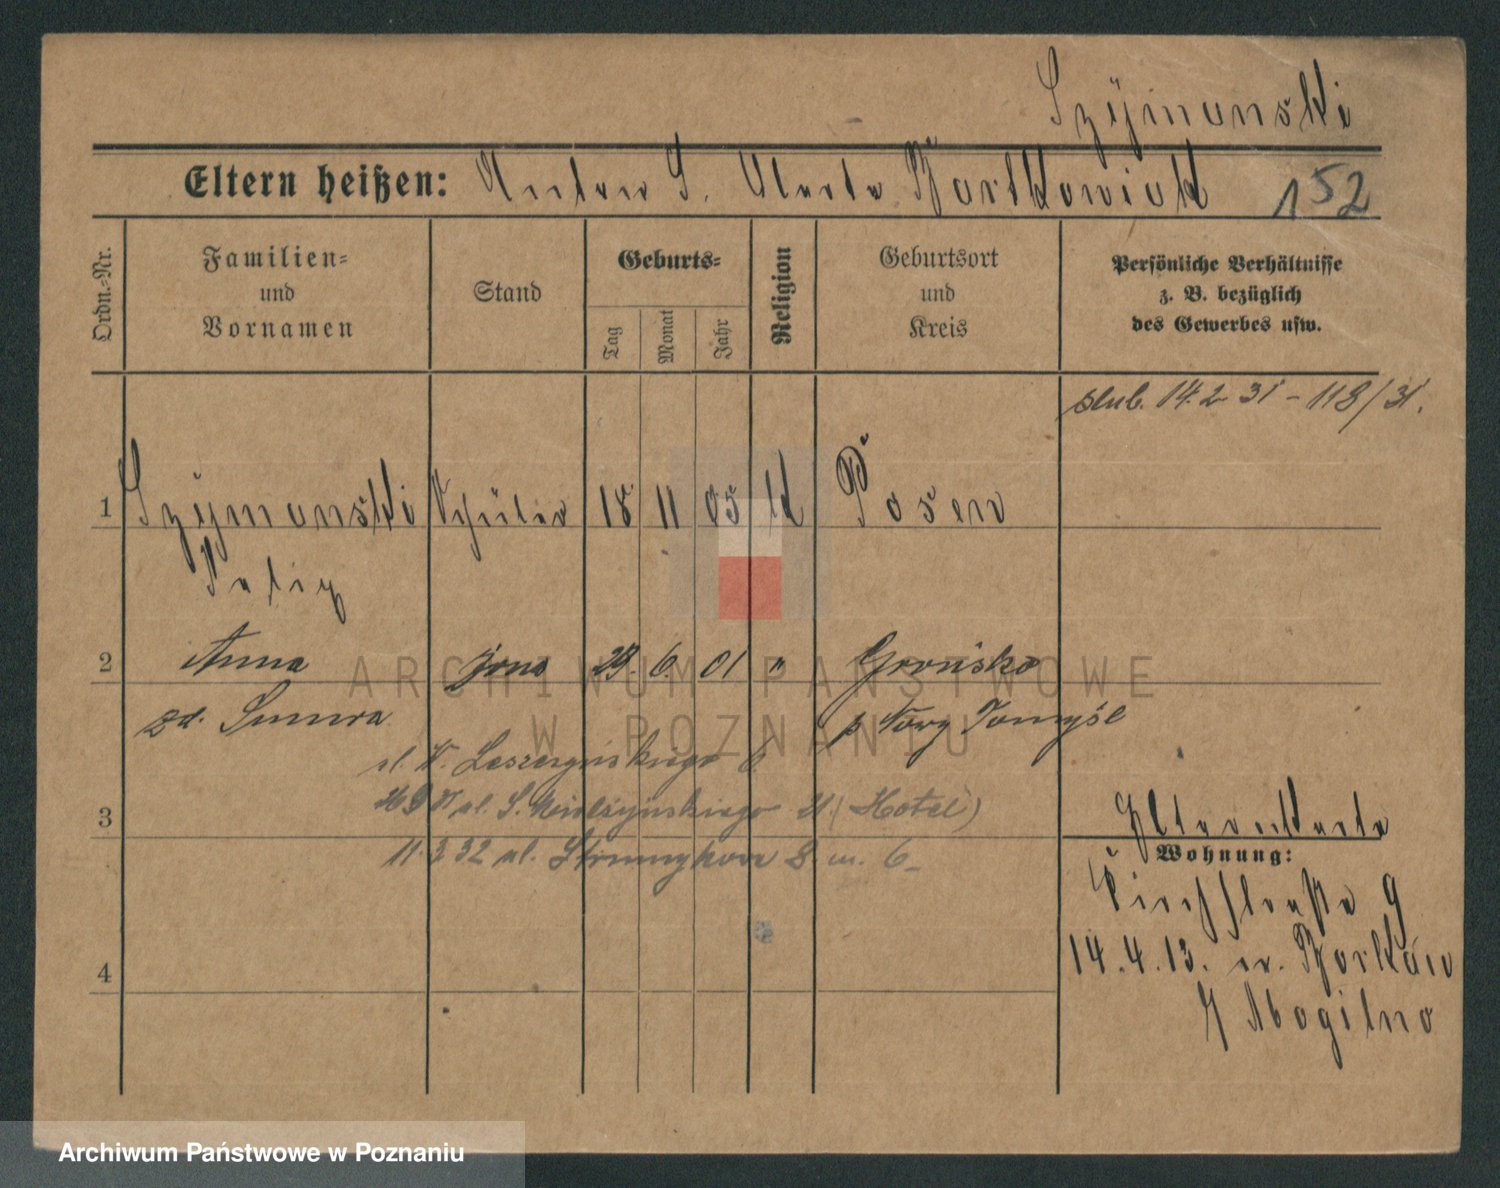 Szymanski
Eltern heißen: Anton S. Marta Bartkowiak 152
Ordn.-Nr.
Familien-
und
Vornamen
Stand
Geburts-
Tag
Monat
Jahr
Religion
Geburtsort
und
Kreis
Persönliche Verhältnisse
z. B. bezüglich
des Gewerbes usw.
slub. 14.2 31 - 118/31.
1 Szymanski Schüler 18 11 05 K Posen
Felix
2 Anna żona 29. 6. 01 " Grońsko
zd. p Nowy Tomyśl
ul. W. Leszczyńskiego 6
ul. S. Mielżyńskiego (Hotel)
3
Elternkarte
11.3 32 ul. Strumykowa 8 m. 6
Wohnung:
9
14.4.13.
4
Mogilno
ARCHIWUM PAŃSTWOWE
W POZNANIU
Archiwum Państwowe w Poznaniu